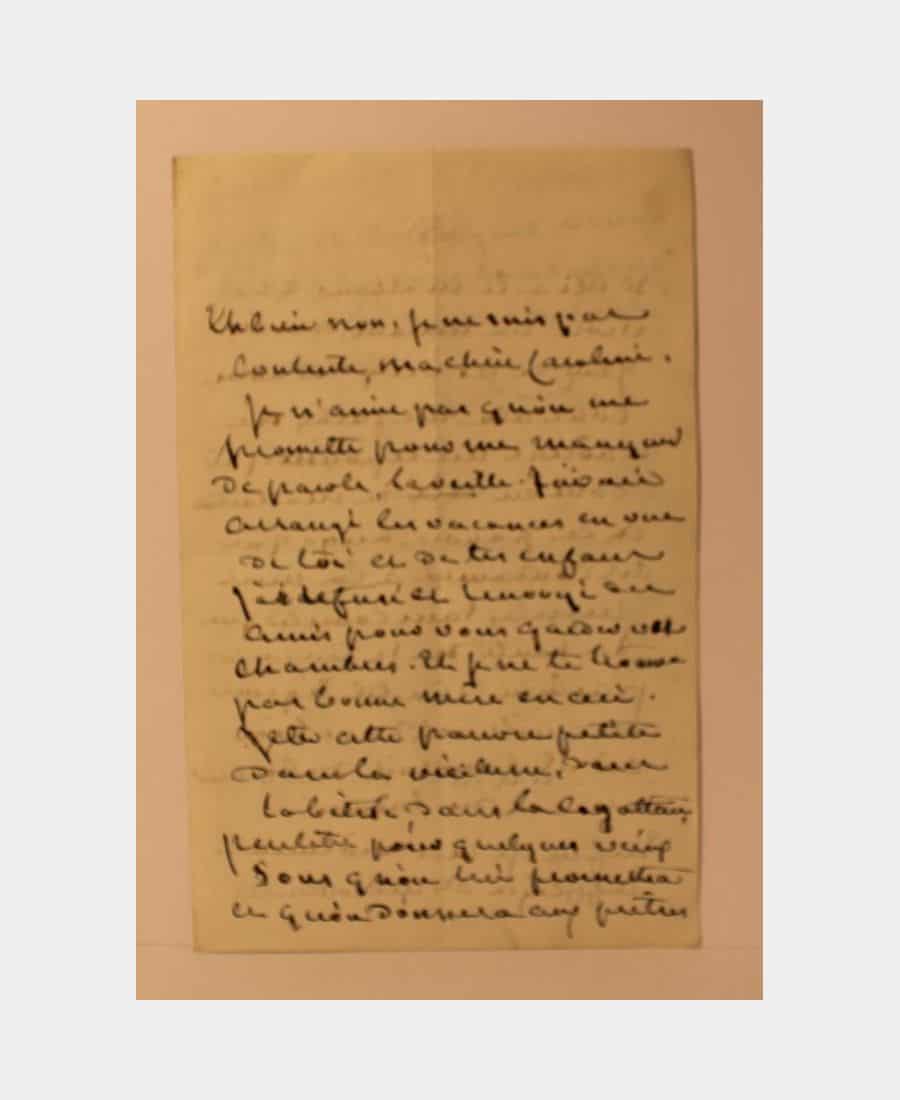 Eh bien non, je ne suis pas
contente, ma chère Caroline.
Je n'aime pas qu'on me
promette pour me manquer
de parole, la veille. J'avais
arrangé les vacances en vue
de toi et de tes enfans
j'ai refusé et renvoyé des
amis pour vous garder vos
chambres. Et je ne te trouve
pas bonne mère en ceci.
Jeter cette pauvre petite
dans la vieillesse, dans
la bêtise, dans la
peut être pour quelques vieux
Sous qu'on lui promettra
et qu'on donnera aux prêtres